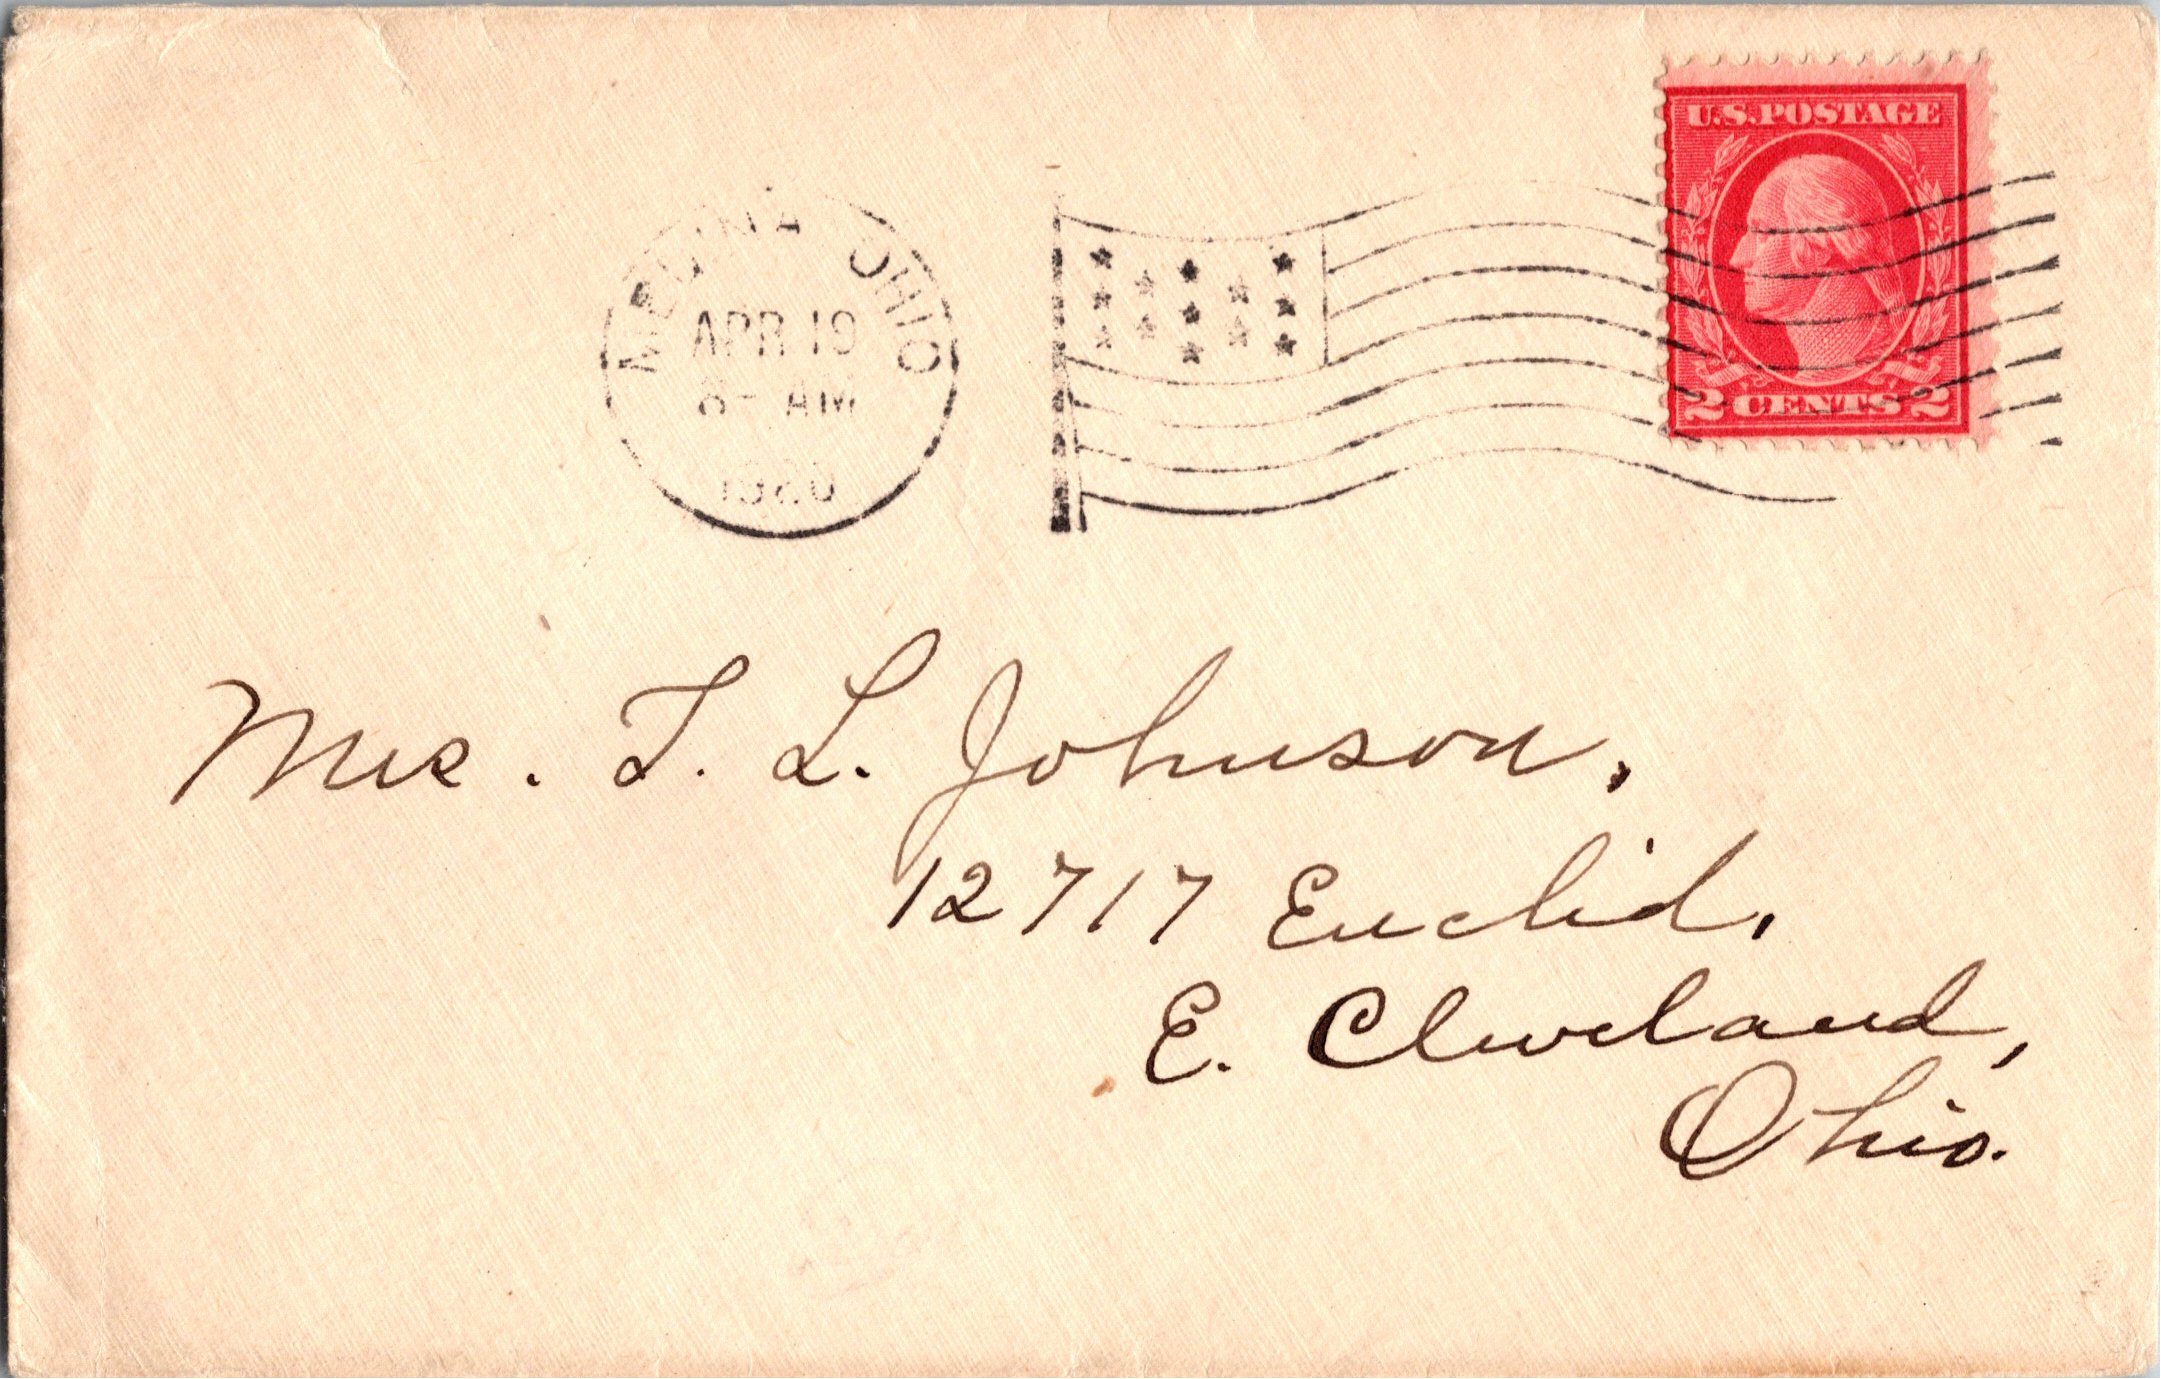 MEDINA OHIO
APR 19
8- AM
1920
U.S. POSTAGE
2 CENTS 2
Mrs. T. L. Johnson,
12717 Euclid.
E. Cleveland,
Ohio.